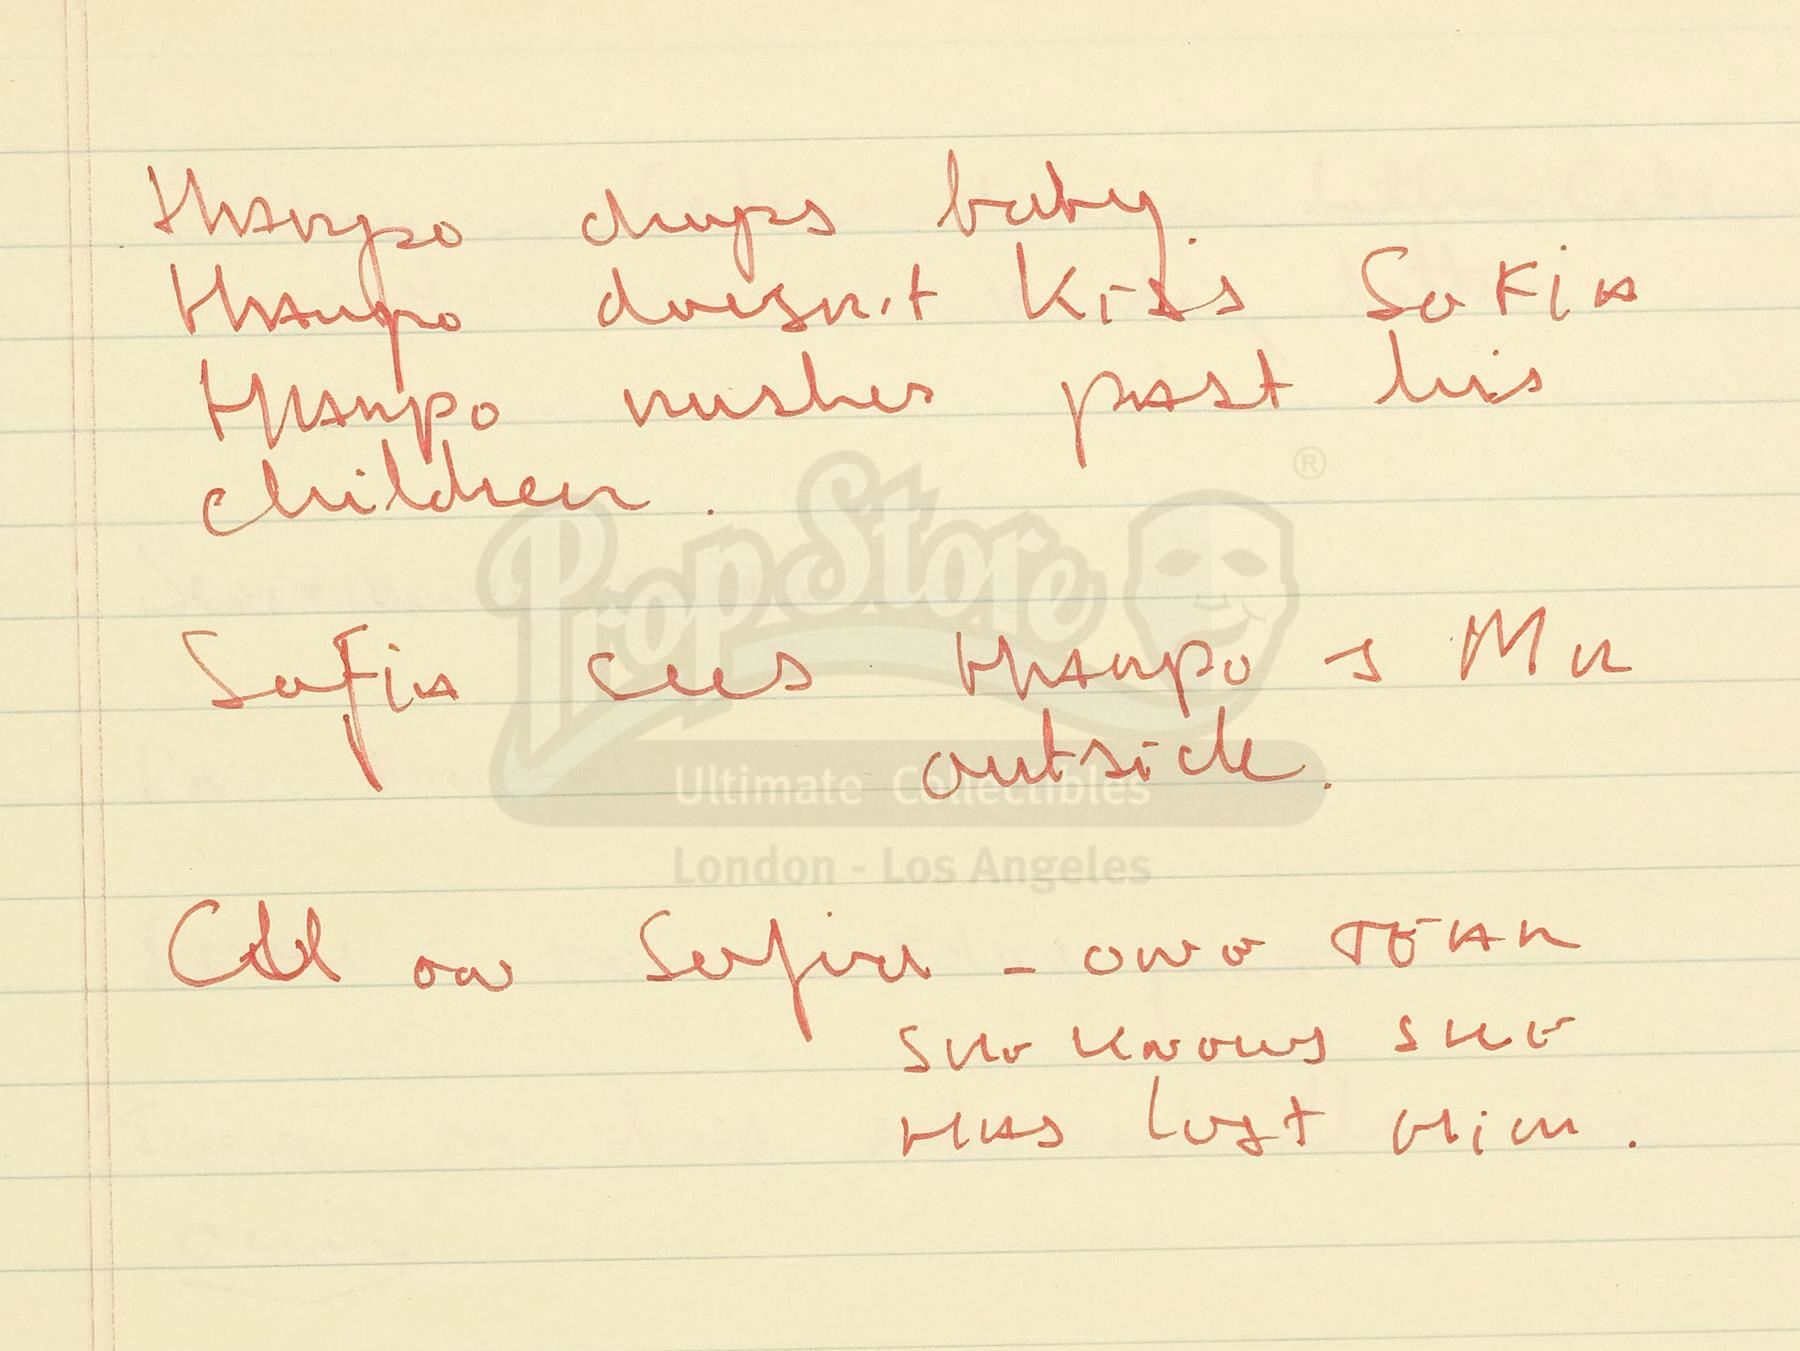 Harpo drops baby.
Harpo doesn't kiss Sofia
Harpo rushes past his
children.
Sofia sees Harpo & Mr
outside.
on Sofia - one TEAR
SHE KNOWS SHE
HAS lost Him.
PropStore ®
Ultimate Collectibles
London - Los Angeles